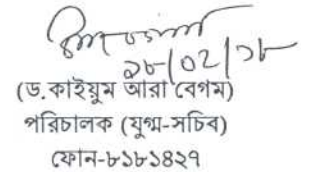 ১৮/০২/১৮
(ড.কাইয়ুম আরা বেগম)
পরিচালক (যুগ্ম-সচিব)
ফোন-৮১৮১৪২৭